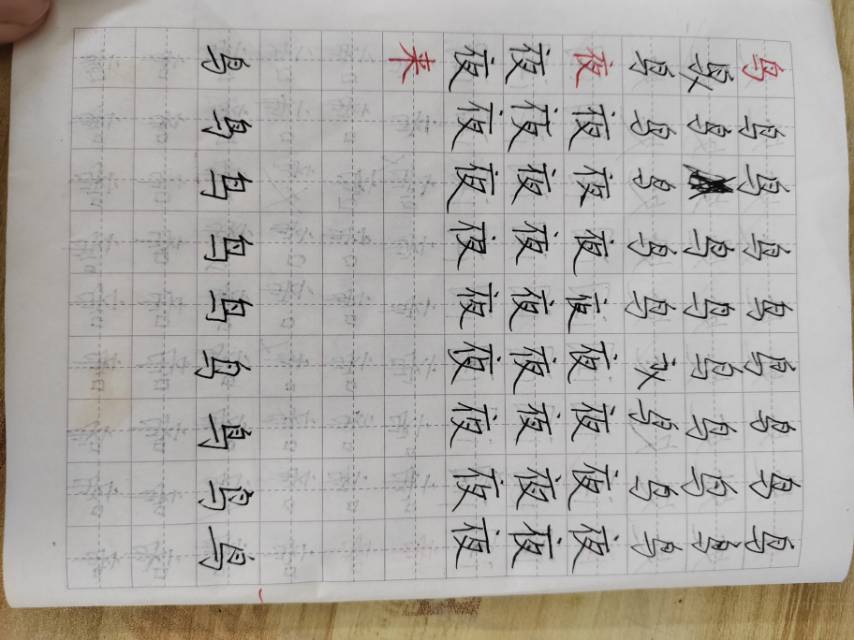 鸟鸟鸟鸟鸟鸟鸟鸟鸟
鸟鸟鸟鸟鸟鸟鸟
鸟鸟鸟鸟鸟鸟鸟鸟
夜夜夜夜夜夜夜夜夜
夜夜夜夜夜夜夜夜夜
夜夜夜夜夜夜夜夜夜
来
鸟鸟鸟鸟鸟鸟鸟鸟鸟